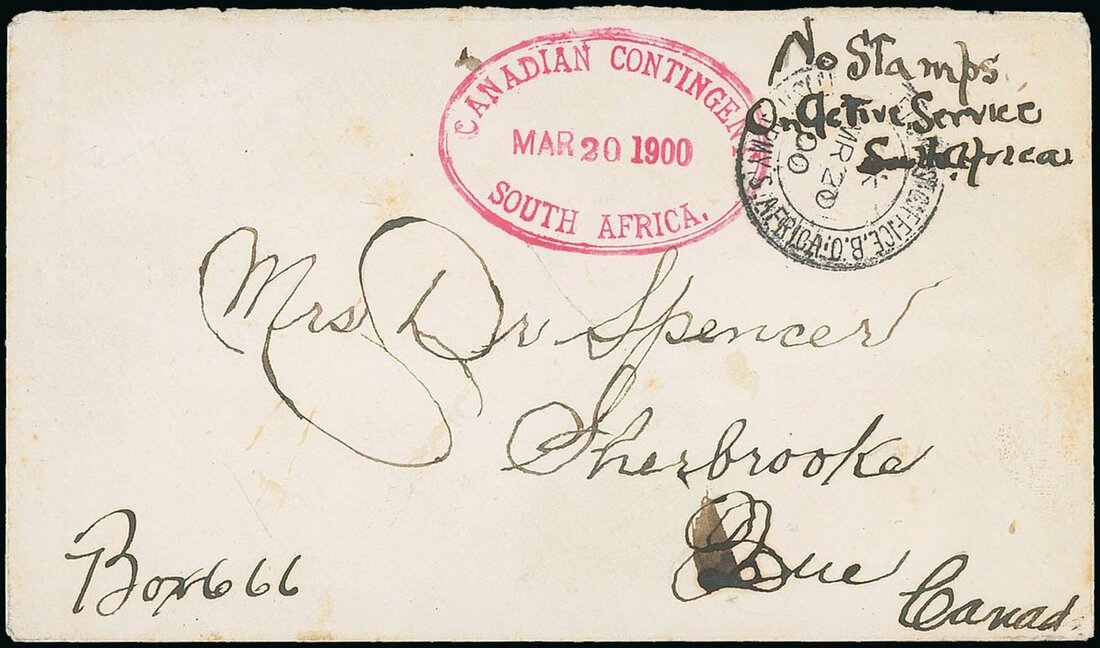 CANADIAN CONTINGENT
MAR 20 1900
SOUTH AFRICA.
No Stamps
On Active Service
South Africa
OFFICE.B.O.
ARMY S. AFRICA.
MR 20
00
Mrs Dr Spencer
Sherbrooke
Que
Canad
Box 666